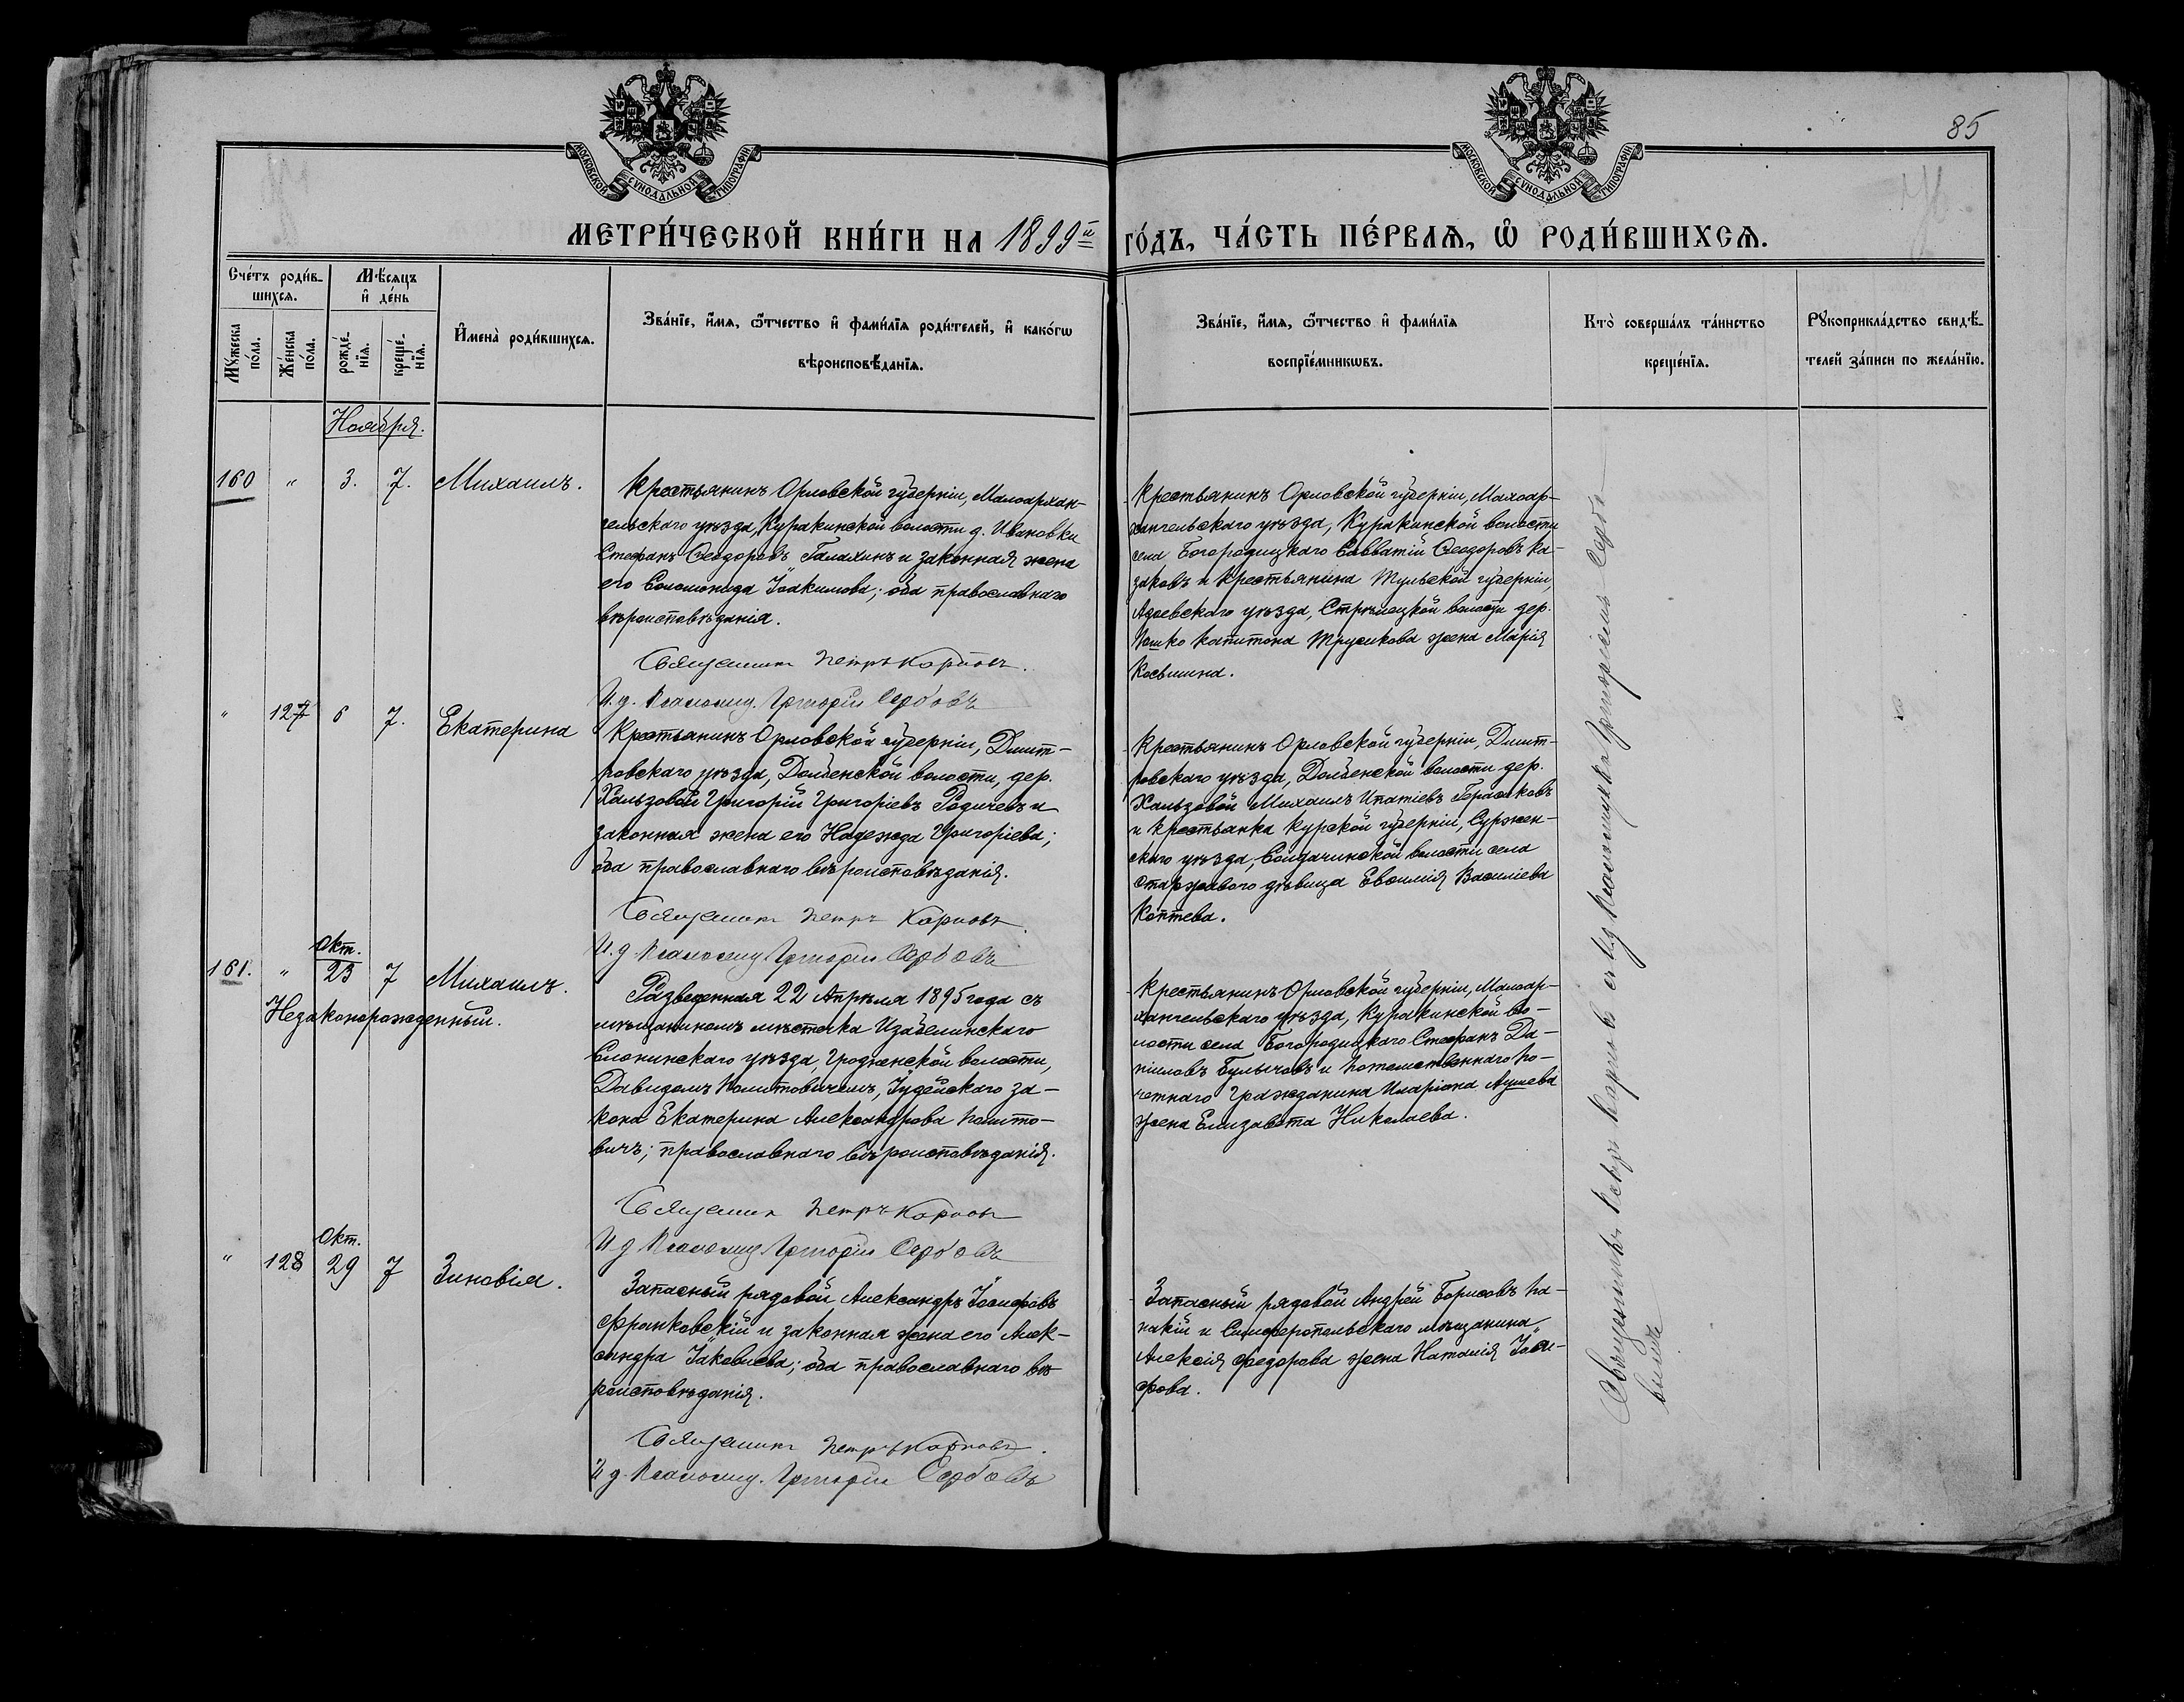 85
МОСКОВСКОЙ СѴНОДАЛЬНОЙ ТИПОГРАФІИ
МОСКОВСКОЙ СѴНОДАЛЬНОЙ ТИПОГРАФІИ
МЕТРИ́ЧЕСКОЙ КНИ́ГИ НА 1899й ГО́ДЪ, ЧА́СТЬ ПЕ́РВАЯ, Ѡ РОДИ́ВШИХСЯ.
Сче́тъ роди́в-
шихся.
Мꙋ́жеска по́ла.
Же́нска по́ла.
Мѣ́сяцъ
и҆ де́нь
рожде́-
нїя.
креще́-
нїя.
И҆мена̀ роди́вшихся.
Зва́нїе, и҆́мя, ѻ҆́тчество и҆ фами́лїя роди́телей, и҆ како́гѡ
вѣроисповѣ́данїя.
Зва́нїе, и҆́мя, ѻ҆́тчество и҆ фами́лїя
воспрїе́мникѡвъ.
Кто̀ соверша́лъ та́инство
креще́нїя.
Рꙋкоприкла́дство свидѣ́-
телей за́писи по жела́нїю.
Ноября.
160 " 3. 7. Михаилъ.
Крестьянинъ Орловской губерніи, Малоархан-
гельскаго уѣзда, Куракинской волости д. Ивановки
Стефанъ Ѳеодоровъ Галахинъ и законная жена
его Соломонида Іоакимова; оба православнаго
вѣроисповѣданія.
Священникъ Петръ Карповъ.
И. д. Псаломщ. Григорій Сербовъ
Крестьянинъ Орловской губерніи, Малоар-
хангельскаго уѣзда, Куракинской волости
села Богородицкаго Савватій Ѳеодоровъ Ка-
заковъ и крестьянина Тульской губерніи,
уѣзда, Стрѣлецкой волости дер.
Капитона Трусикова жена Марія
Косьмина.
" 127 6 7. Екатерина
Крестьянинъ Орловской губерніи, Дмит-
ровскаго уѣзда, Долбенской волости, дер.
Хальзовой Григорій Григоріевъ Родичевъ и
законная жена его Надежда Григоріева;
оба православнаго вѣроисповѣданія.
Священникъ Петръ Карповъ.
И. д. Псаломщ Григорій Сербовъ
Крестьянинъ Орловской губерніи, Дмит-
ровскаго уѣзда, Долбенской волости дер.
Хальзовой Михаилъ Ипатіевъ Герасиковъ
и крестьянка Курской губерніи,
скаго уѣзда, волости села
дѣвица Евѳимія Василіева
Коптева.
161. " Окт. 23 7 Михаилъ.
Незаконорожденный.
Разведенная 22 Апрѣля 1895 года съ
мѣщаниномъ мѣстечка Изабелинскаго
Слонимскаго уѣзда, Гродненской волости,
Давидомъ Политовичемъ, Іудейскаго за-
кона Екатерина Александрова Полито-
вичъ; православнаго вѣроисповѣданія.
Священник Петръ Карповъ
И д Псаломщ. Григорій Сербовъ
Крестьянинъ Орловской губерніи, Малоар-
хангельскаго уѣзда, Куракинской во-
лости села Богородицкаго Стефанъ Да-
ніиловъ Булычовъ и потомственнаго по-
четнаго гражданина Иларіона Аушева
жена Елизавета Николаева.
" 128 Окт. 29 7 Зиновія.
Запасный рядовой Александръ Іосифовъ
Франковскій и законная жена его Алек-
сандра Іаковлева; оба православнаго вѣ-
роисповѣданія.
Священникъ Петръ Карповъ.
И д. Псаломщ. Григорій Сербовъ
Запасный рядовой Андрей Борисовъ Па-
накій и Симферопольскаго мѣщанина
Алексія Федорова жена Наталія Іоси-
фова.
Священникъ Петръ Карповъ съ и д Псаломщик. Григоріемъ Сербо-
вымъ